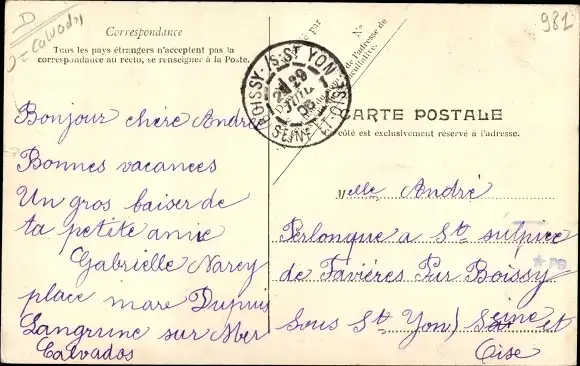 D
= Calvados
981
Correspondance
Tous les pays étrangers n'acceptent pas la
correspondance au recto, se renseigner à la Poste.
par
N°
de l'adresse de
BOISSY-/S-ST YON
29
JUIL
SEINE-ET-OISE
CARTE POSTALE
côté est exclusivement réservé à l'adresse.
Bonjour chère André
Bonnes vacances
Un gros baiser de
ta petite amie
Gabrielle Narcy
place mare Dupuis
Langrune sur Mer
Calvados
Melle André
Perlonque a St sulpice
de Favières Par Boissy
Sous St Yon) Seine et
Oise